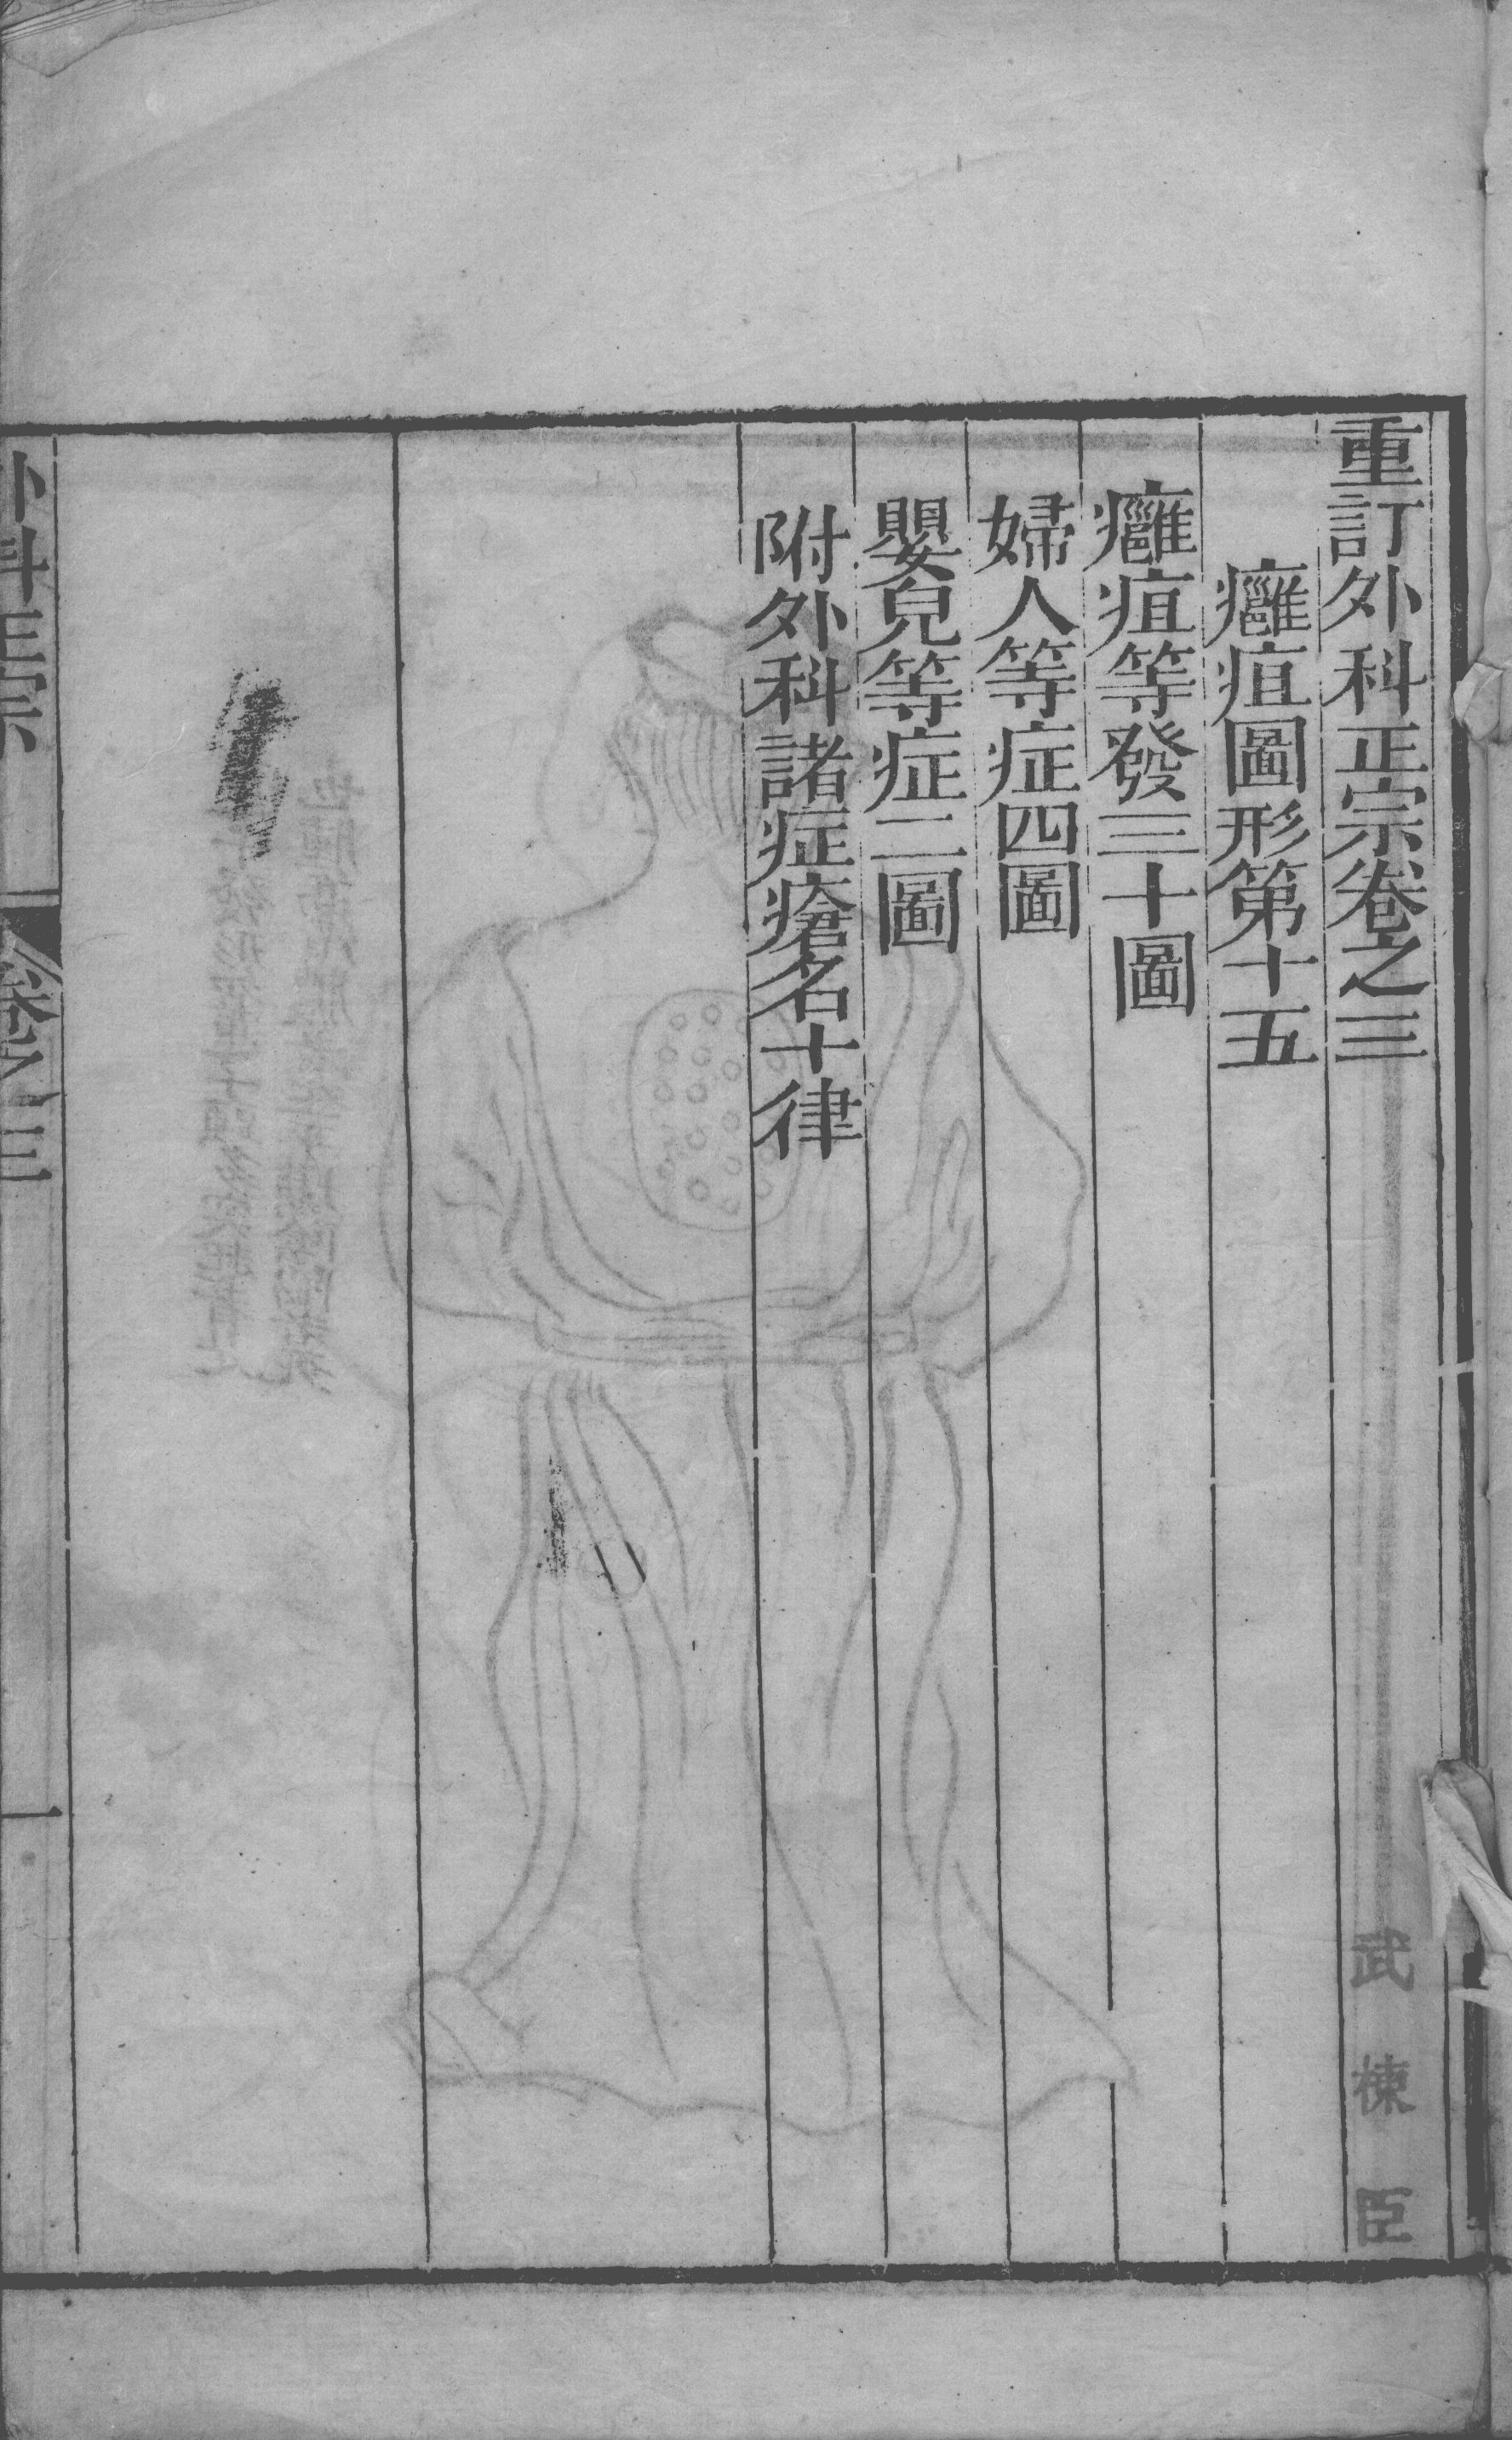 重訂外科正宗卷之三
癰疽圖形第十五
癰疽等發三十圖
婦人等症四圖
嬰兒等症二圖
附外科諸症瘡名十律
武棟臣
外科正宗
卷三
一